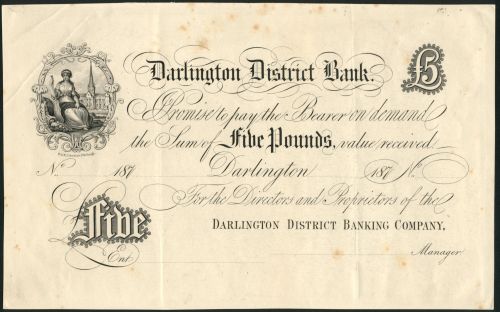 Darlington District Bank.
£5
I Promise to pay the Bearer on demand
the Sum of Five Pounds, value received
No. 187 Darlington 187 No.
For the Directors and Proprietors of the
Five DARLINGTON DISTRICT BANKING COMPANY,
Ent. Manager.